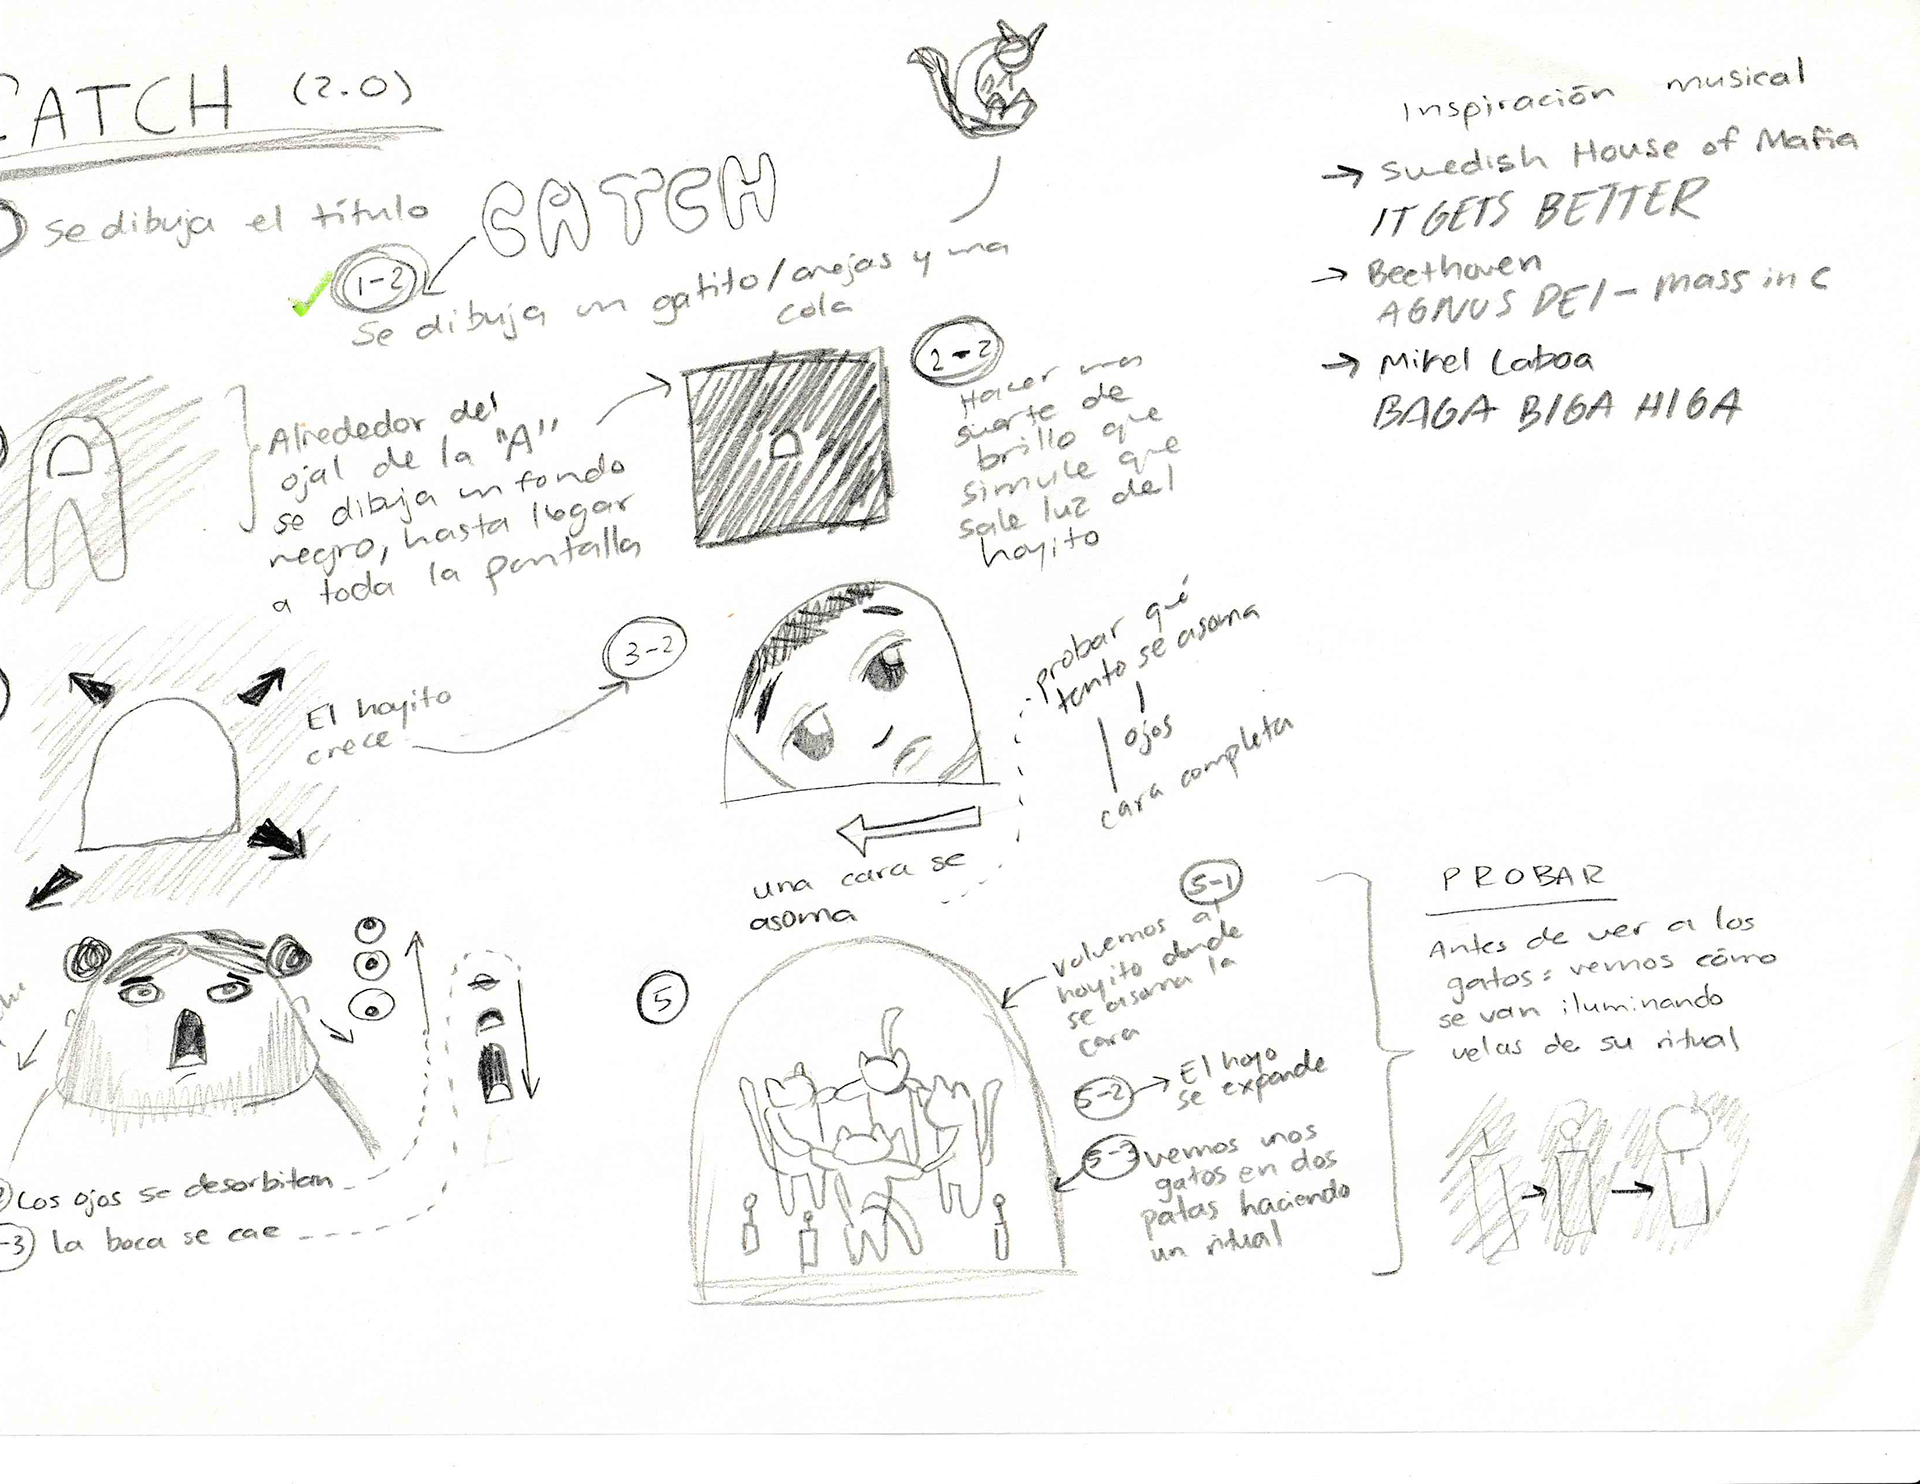 CATCH (2.0)
Se dibuja el título
CATCH
1-2
Se dibuja un gatito/orejas y una
cola
Alrededor del
ojal de la "A"
se dibuja un fondo
negro, hasta llegar
a toda la pantalla
2-2
Hacer una
suerte de
brillo que
simule que
sale luz del
hoyito
El hoyito
crece
3-2
probar qué
tanto se asoma
ojos
cara completa
una cara se
asoma
Los ojos se desorbitan
-3) la boca se cae
5
5-1
volvemos al
hoyito donde
se asoma la
cara
5-2 El hoyo
se expande
5-3 vemos unos
gatos en dos
patas haciendo
un ritual
Inspiración musical
→ Swedish House of Mafia
IT GETS BETTER
→ Beethoven
AGNUS DEI - mass in C
→ Mikel Laboa
BAGA BIGA HIGA
PROBAR
Antes de ver a los
gatos: vemos cómo
se van iluminando
velas de su ritual